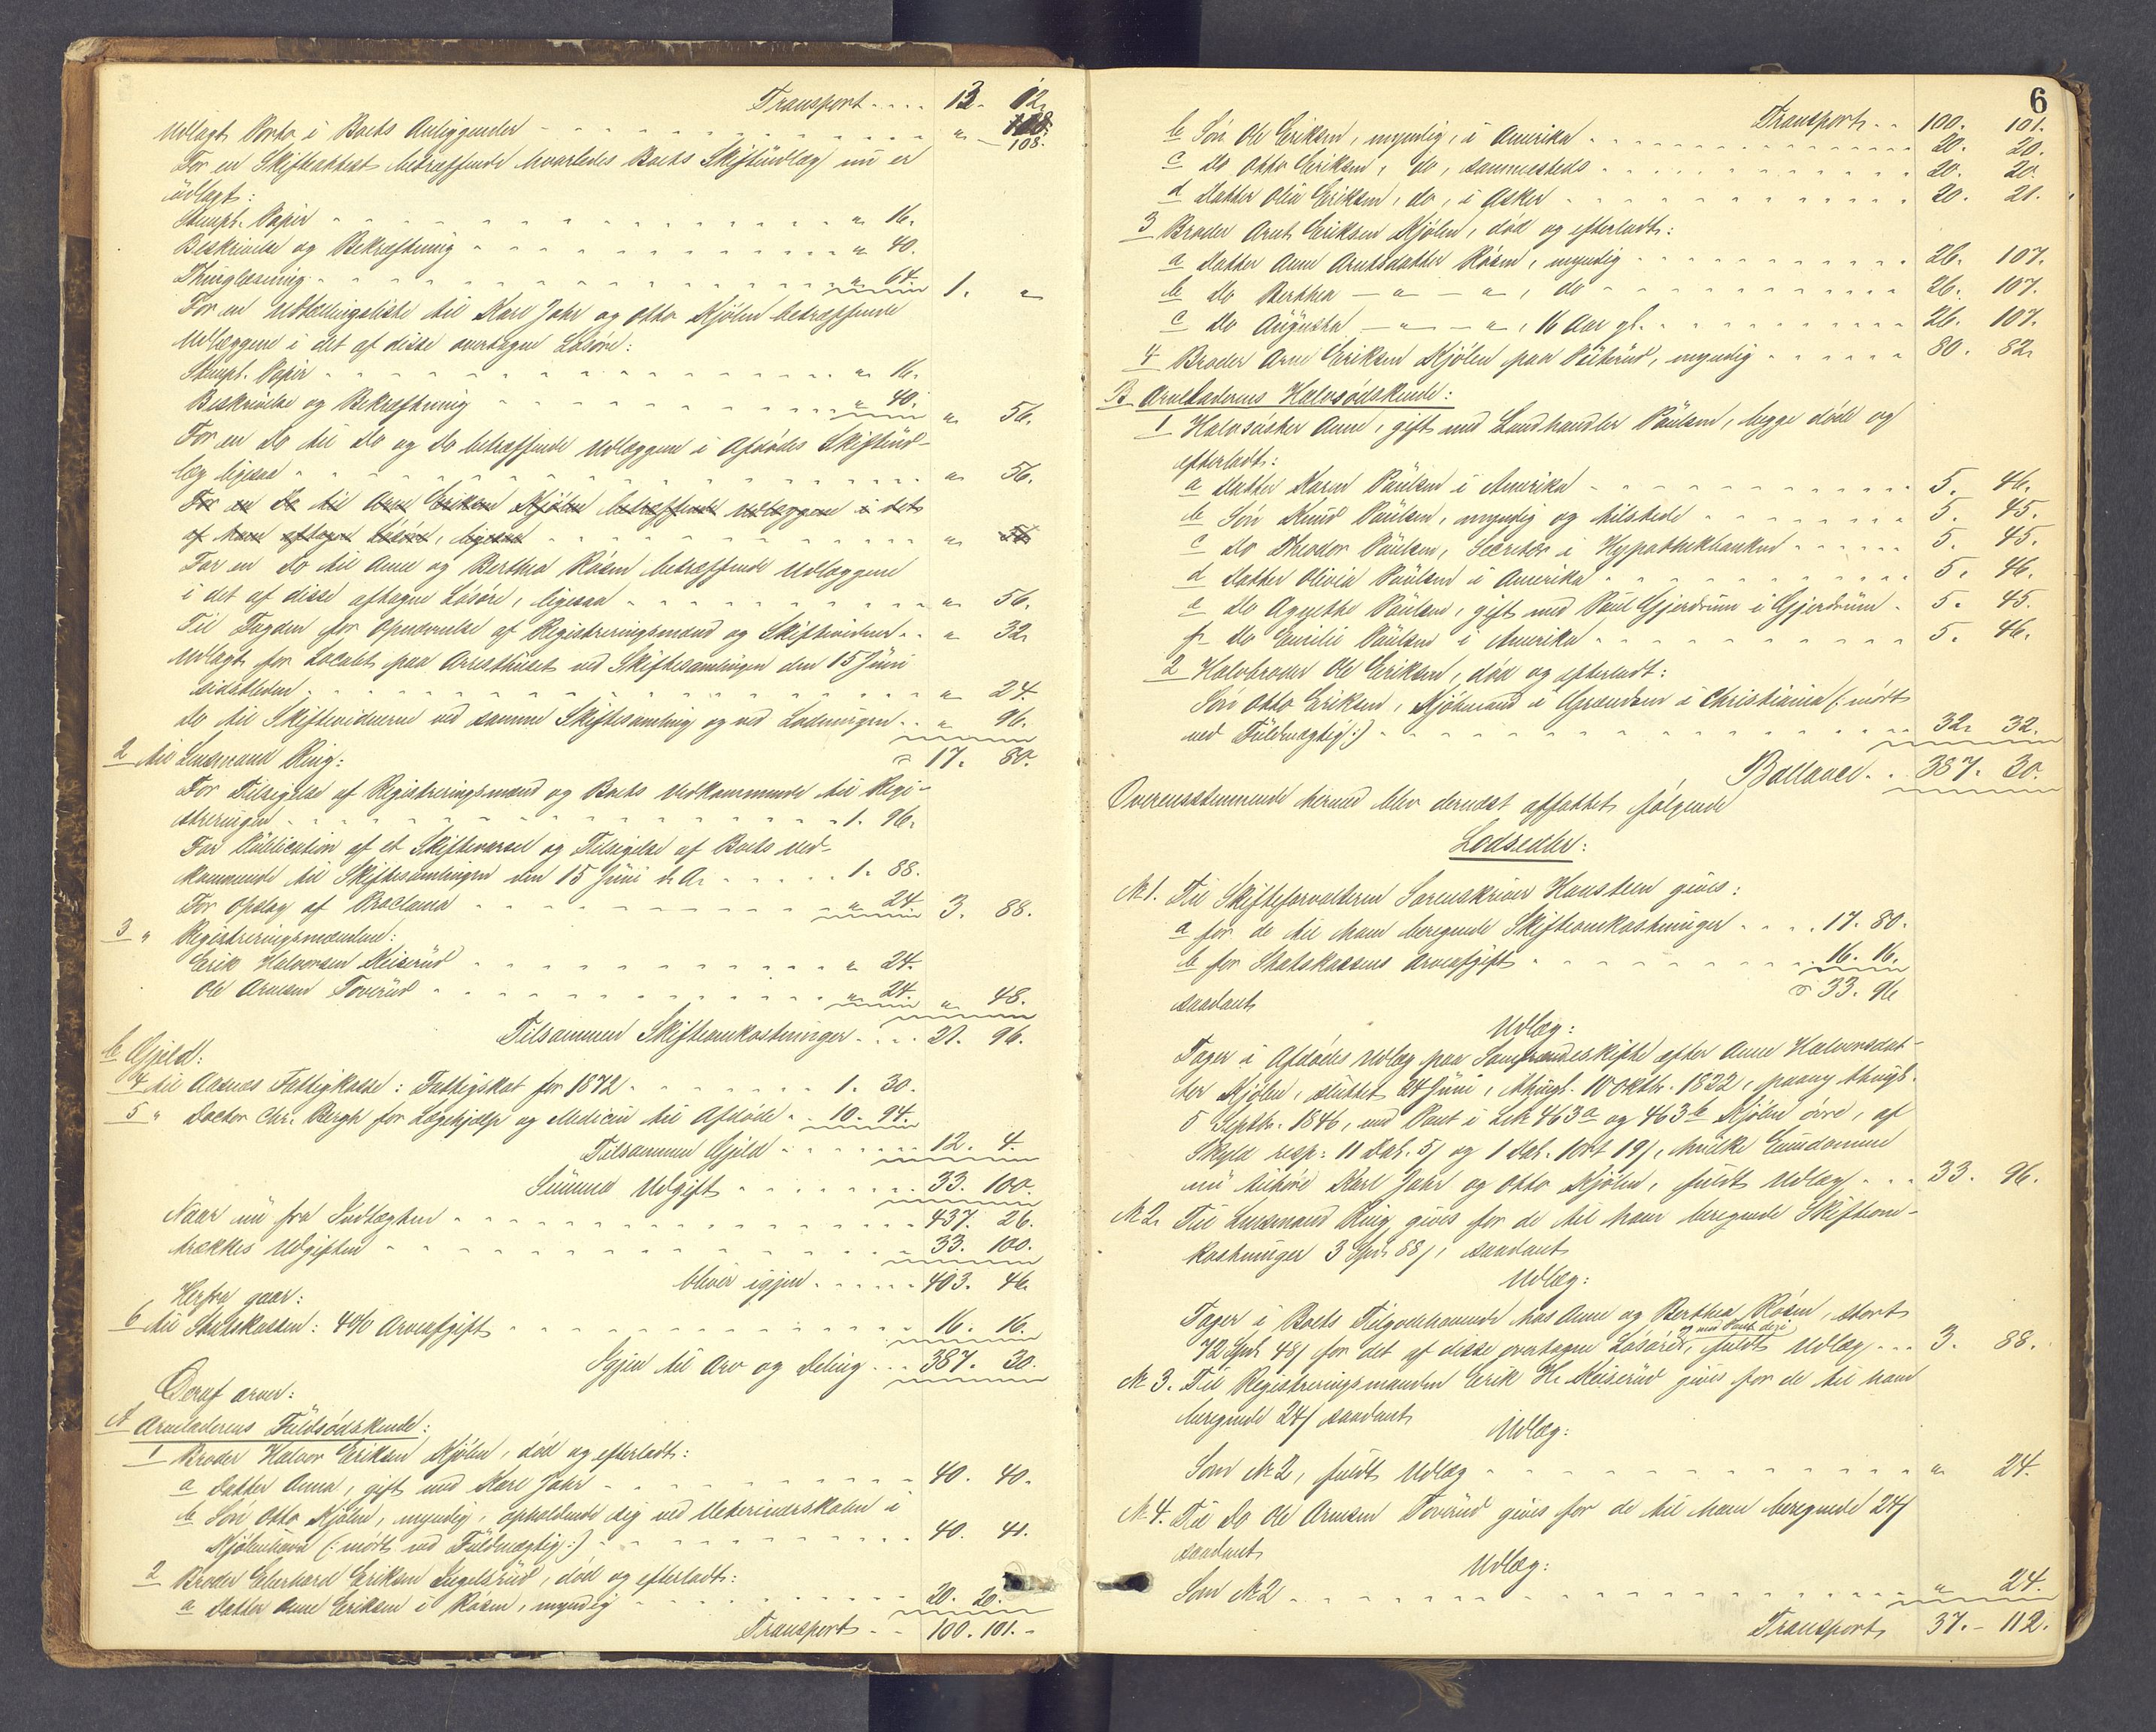 Transport .... 13. 12.
Udlagt Porto i Boets Anliggender " 108.
For en Skifteattest betræffende hvorledes Boets Skifteudlæg nu er
udlagt:
Stempl. Papir " 16.
Beskrivelse og Bekræftning " 40.
Thinglæsning " 64. 1. "
For en Udtællingsliste til Karl Jahr og Otto Kjölen betræffende
Udlæggene i det af disse overtagne Lösöre:
Stempl. Papir " 16.
Beskrivelse og Bekræftning " 40. " 56.
For en Do til Do og Do betræffende Udlæggene i Afdödes Skifteud-
læg ligesaa " 56.
For en Do til Arne Eriksen Kjölen betræffende Udlæggene i det
af ham aftagne Lösöre, ligesaa " 56
For en Do til Anne og Berthea Rösen betræffende Udlæggene
i det af disse aftagne Lösöre, ligesaa " 56.
Til Fogden for Opnævnelse af Registreringsmænd og Skiftevidner " 32.
Udlagt for Localet paa Arresthuset ved Skiftesamlingen den 15 Juni
sidstleden " 24.
Do til Skiftevidnerne ved samme Skiftesamling og ved Lodningen " 96.
2 til Lensmand Ring: 17. 80.
For Tilsigelse af Registreringsmænd og Boets Vedkommende til Regi-
streringen 1. 96.
For Publication af et Skiftevarsel og Tilsigelse af Boets Ved-
kommende til Skiftesamlingen den 15 Juni d. A. 1. 88.
For Opslag af Proclama " 24. 3. 88.
3 " Registreringsmændene:
Erik Halvorsen Keiserud " 24.
Ole Arnesen Toverud " 24. " 48.
Tilsammen Skifteomkostninger .... 21. 96.
b Gjeld:
4 til Aasnes Fattigkasse: Fattigskat for 1872 1. 30.
5 " Doctor Chr. Bergh for Lægehjælp og Medicin til Afdöde 10. 94.
Tilsammen Gjeld 12. 4.
Summa Udgift 33. 100.
Naar nu fra Indtægten 437. 26.
trækkes Udgiften 33. 100.
bliver igjen 403. 46.
Herfra gaar:
6 til Statskassen: 4 % Arveafgift 16. 16.
Igjen til Arv og Deling 387. 30.
Deraf arver:
A Arveladerens Fuldsödskende:
1 Broder Halvor Eriksen Kjölen, död og efterladt:
a Datter Anna, gift med Karl Jahr 40. 40.
b Sön Otto Kjölen, myndig, opholdende sig ved Veterinærskolen i
Kjöbenhavn (: mödt ved Fuldmægtig :) 40. 41.
2 Broder Eberhard Eriksen Ingelsrud, död og efterladt:
a Datter Anne Eriksen i Rösen, myndig 20. 20.
Transport 100. 101.
6
Transport 100. 101.
b Sön Ole Eriksen, myndig, i Amerika 20. 20.
c Do Otto Eriksen, do, sammesteds 20. 20.
d Datter Olia Eriksen, do, i Asker 20. 21.
3 Broder Arnt Eriksen Kjölen, död og efterladt:
a Datter Anne Arntsdatter Rösen, myndig 26. 107.
b Do Berthea — " — ", do 26. 107.
c Do Augusta — " — ", 16 Aar gl. 26. 107.
4 Broder Arne Eriksen Kjölen paa Påterud, myndig 80. 82.
B Arveladerens Halvsödskende:
1 Halvsöster Anne, gift med Landhandler Paulsen, begge döde og
efterladt:
a Datter Karen Paulsen i Amerika 5. 46.
b Sön Knud Paulsen, myndig og tilstede 5. 45.
c Do Theodor Paulsen, Secretær i Hypothekbanken 5. 45.
d Datter Olivia Paulsen i Amerika 5. 46.
e Do Agnethe Paulsen, gift med Paul Gjerdrum i Gjerdrum 5. 45.
f Do Emilie Paulsen i Amerika 5. 46.
2 Halvbroder Ole Eriksen, död og efterladt:
Sön Otto Eriksen, Kjöbmand i Grændsen i Christiania (: mödt
ved Fuldmægtig :) 32. 32.
Ballance .. 387. 30.
Overensstemmende hermed blev dernæst affattet følgende
Lodsedler:
No 1. Til Skifteforvalteren Sorenskriver Hansteen gives:
a for de til ham beregnede Skifteomkostninger 17. 80.
b for Statskassens Arveafgift 16. 16.
33. 96
saadant
Udlæg:
Tager i Afdödes Udlæg paa Samfrændeskifte efter Anne Halvorsdat-
ter Kjölen, sluttet 24 Juni, thingl. 10 Oktbr. 1822, paany thingl.
5 Septbr. 1846, med Pant i Lbr 463a og 463b Kjölen övre, af
Skyld resp: 11 Dal. 5/ og 1 Dal. 1 ort 19/, hvilke Eiendomme
nu tilhöre Karl Jahr og Otto Kjölen, fuldt Udlæg 33. 96.
No 2. Til Lensmand Ring gives for de til ham beregnede Skifteom-
kostninger 3 Spd. 88/, saadant
Udlæg:
Tager i Boets Tilgodehavende hos Anne og Berthea Rösen, stort
72 Spd. 48/ for det af disse overtagne Lösöre, og med Pant deri, fuldt Udlæg 3. 88.
No 3. Til Registreringsmanden Erik H. Keiserud gives for de til ham
beregnede 24/ saadant
Udlæg:
Som No 2, fuldt Udlæg " 24.
No 4. Til Do Ole Arnesen Toverud gives for de til ham beregnede 24/
saadant
Udlæg:
Som No 2 " 24.
Transport 37. 112.